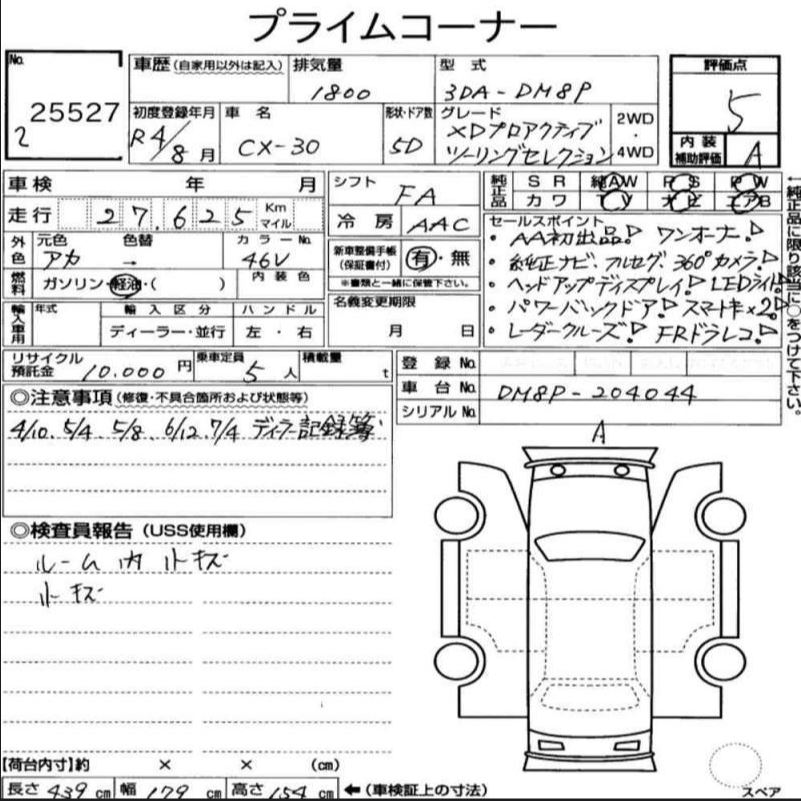 プライムコーナー
No. 25527
2
車歴(自家用以外は記入) 排気量 1800 型式 3DA-DM8P
初度登録年月 R4/8月 車名 CX-30 形状・ドア数 5D グレード XDプロアクティブ ツーリングセレクション 2WD・4WD
評価点 5
内装補助評価 A
車検 年 月
走行 27,625 Km マイル
外色 元色 アカ 色替 → カラーNo. 46V
燃料 ガソリン・軽油・( ) 内装色
輸入車用 年式 輸入区分 ディーラー・並行 ハンドル 左・右
シフト FA
冷房 AAC
新車整備手帳(保証書付) 有・無
※書類と一緒に保管下さい。
名義変更期限 月 日
純正品 SR 純AW PS PW
カワ TV ナビ エアB
セールスポイント
・AA初出品! ワンオーナー!
・純正ナビ、フルセグ、360°カメラ!
・ヘッドアップディスプレイ! LEDライト!
・パワーバックドア! スマートキー×2!
・レーダークルーズ! FRドラレコ!
←純正品に限り該当に○をつけて下さい。
リサイクル預託金 10.000円 乗車定員 5人 積載量 t
登録No.
車台No. DM8P-204044
シリアルNo.
◎注意事項(修復・不具合箇所および状態等)
4/10、5/4、5/8、6/12、7/4 ディーラー記録簿
◎検査員報告(USS使用欄)
ルーム内小キズ
小キズ
A
【荷台内寸】約 × × (cm)
長さ 439 cm 幅 179 cm 高さ 154 cm ←(車検証上の寸法)
スペア